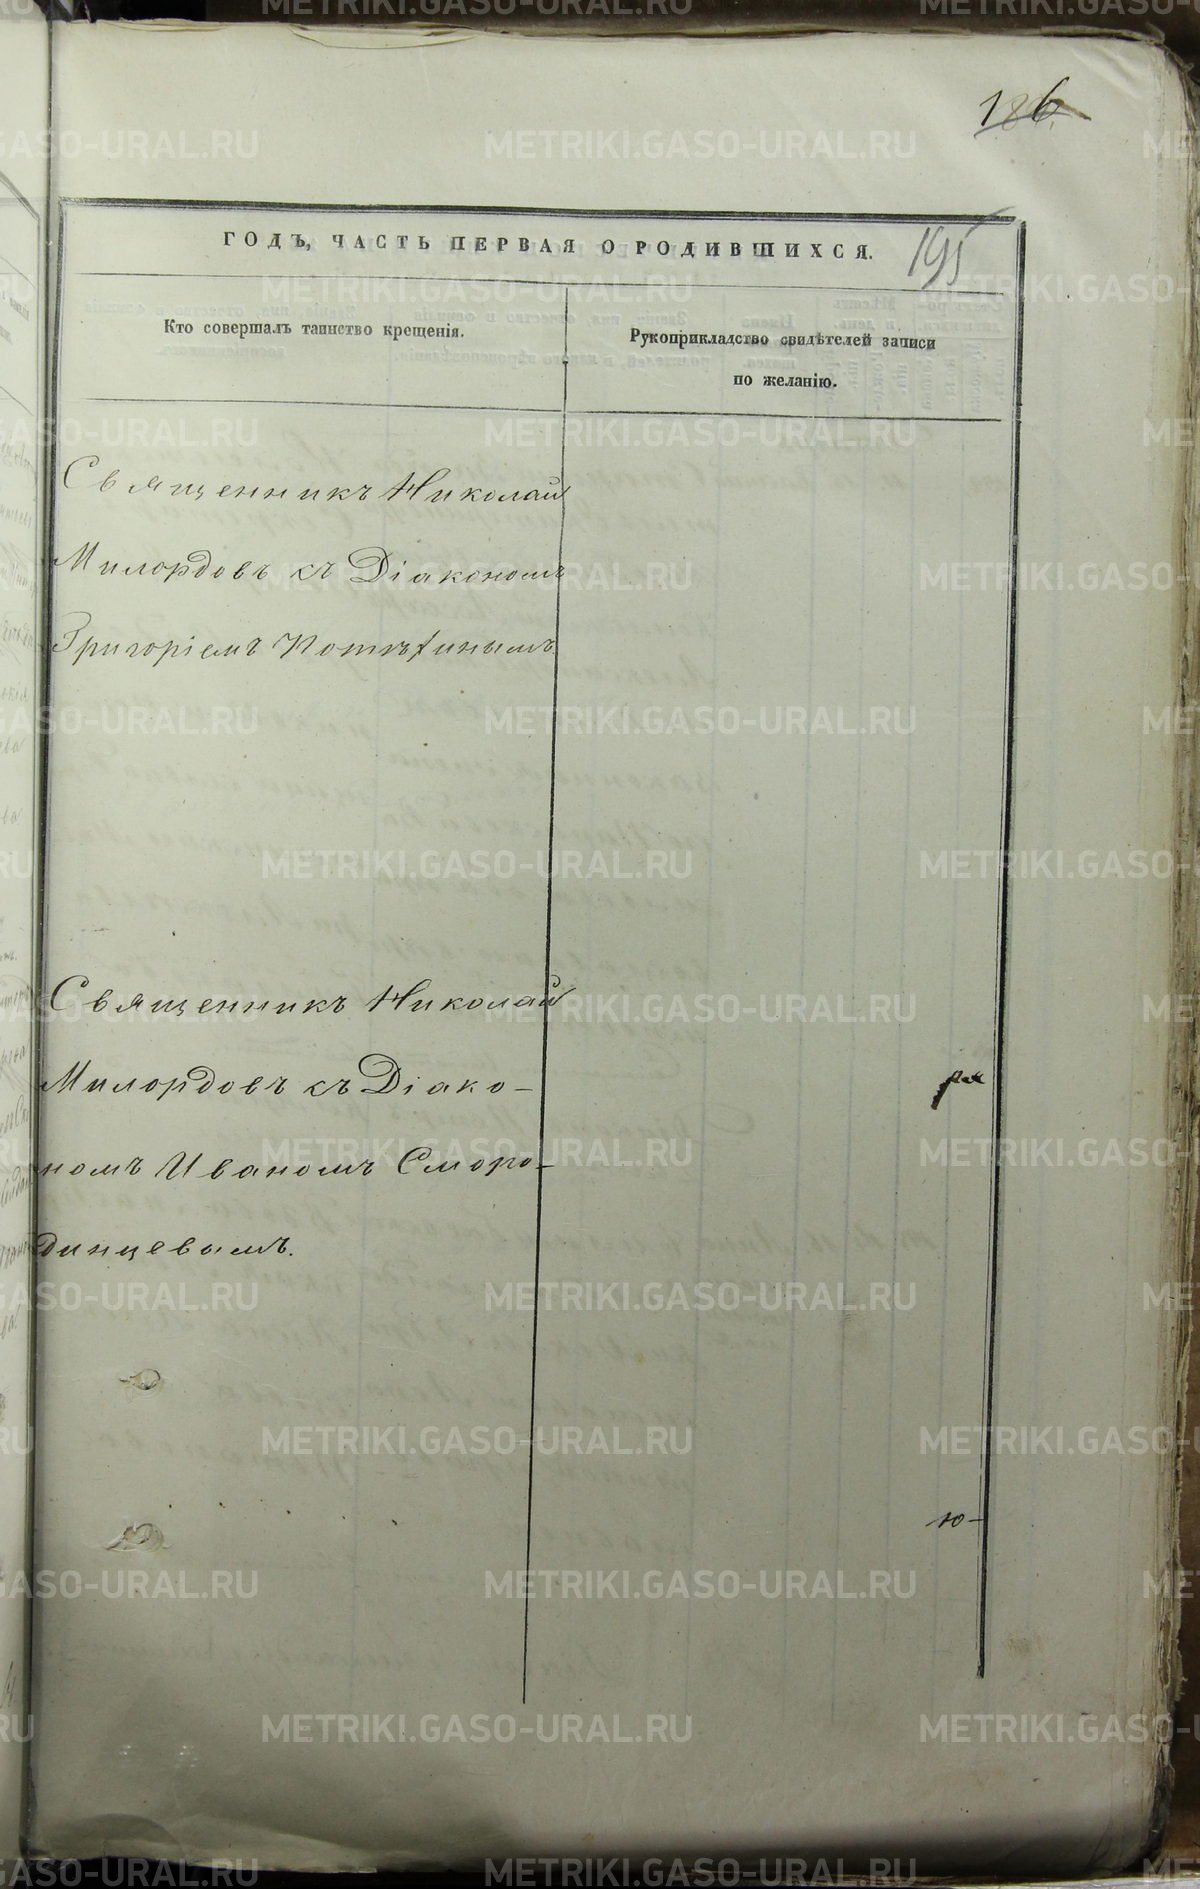 186
ГОДЪ, ЧАСТЬ ПЕРВАЯ О РОДИВШИХСЯ.
195
Кто совершалъ таинство крещенія.
Рукоприкладство свидѣтелей записи
по желанію.
Священникъ Николай
Милордовъ съ Діакономъ
Григоріемъ Потѣхинымъ
Священникъ Николай
Милордовъ съ Діако-
номъ Иваномъ Сморо-
динцевымъ.
ю-
METRIKI.GASO-URAL.RU